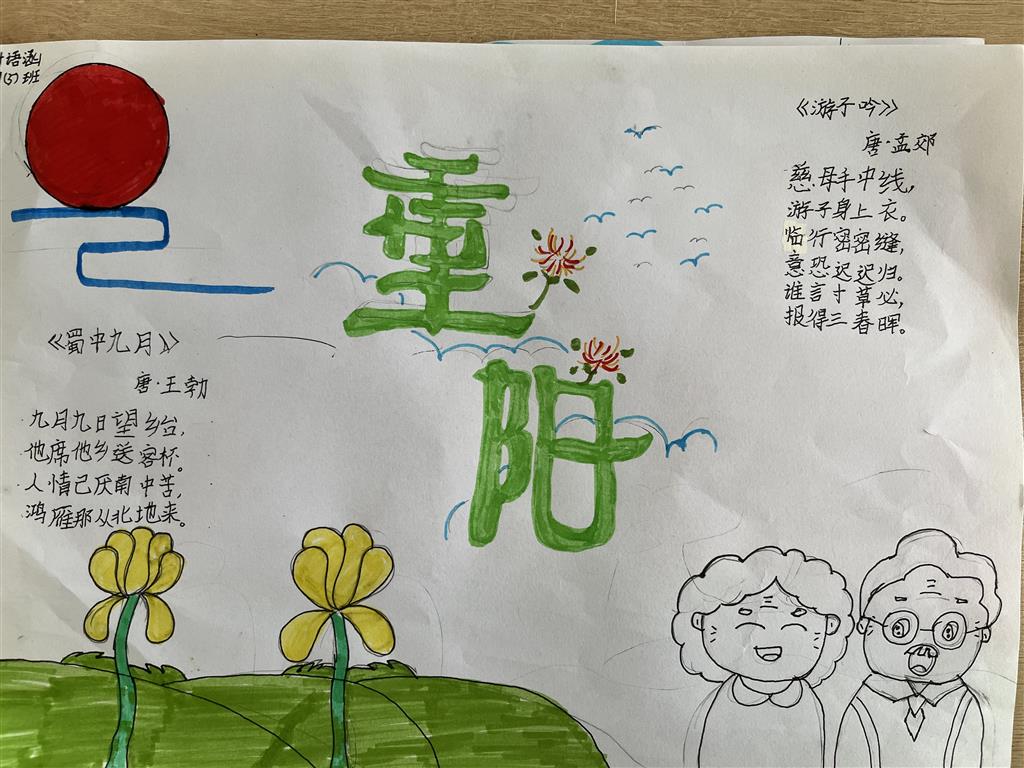 语涵
(5)班
重
阳
《蜀中九月》
唐·王勃
九月九日望乡台,
他席他乡送客杯。
人情已厌南中苦,
鸿雁那从北地来。
《游子吟》
唐·孟郊
慈母手中线,
游子身上衣。
临行密密缝,
意恐迟迟归。
谁言寸草心,
报得三春晖。